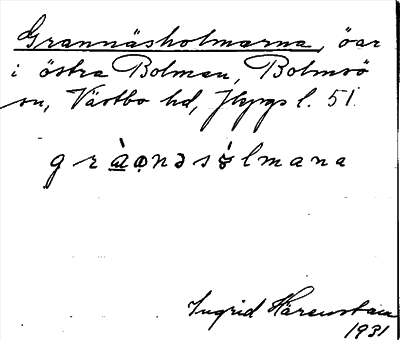 Grannäsholmarna, öar
i östra Bolmen, Bolmsö
sn, Västbo hd, Jkpgs l. 51
gràǫnəsòlmana
Ingrid Härenstam
1931